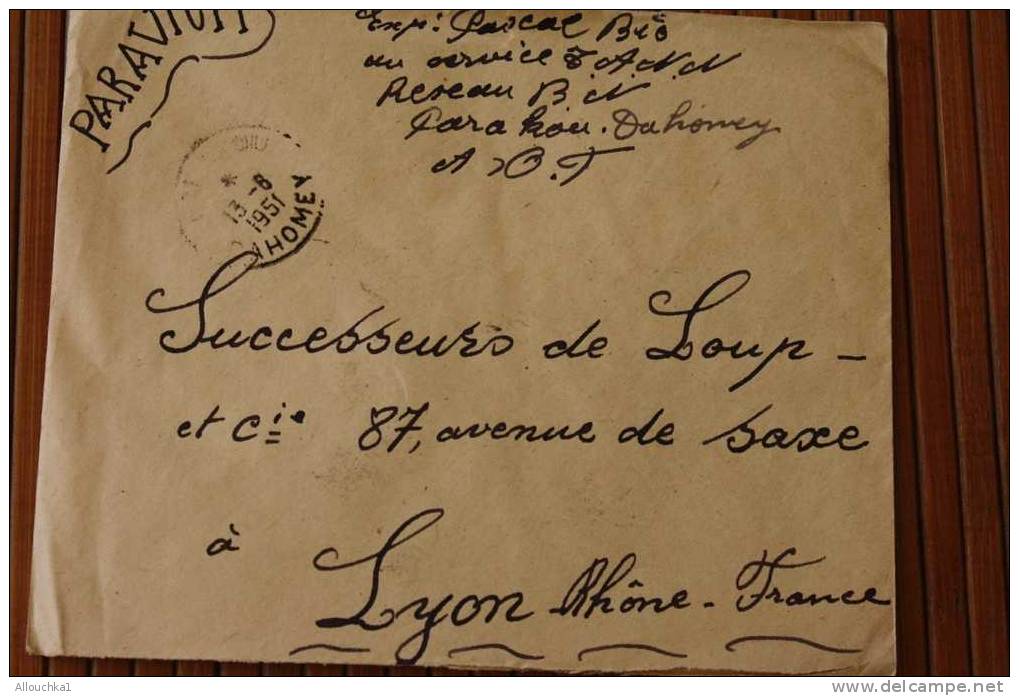 PAR AVION
Exp: Pascal Bio
au service T A.N.N
Reseau B. N
Parakou. Dahomey
A.O.F
13-8
1951
HOMEY
Successeurs de Loup -
et Cie 87, avenue de Saxe
à
Lyon Rhône - France
Allouchka1
www.delcampe.net